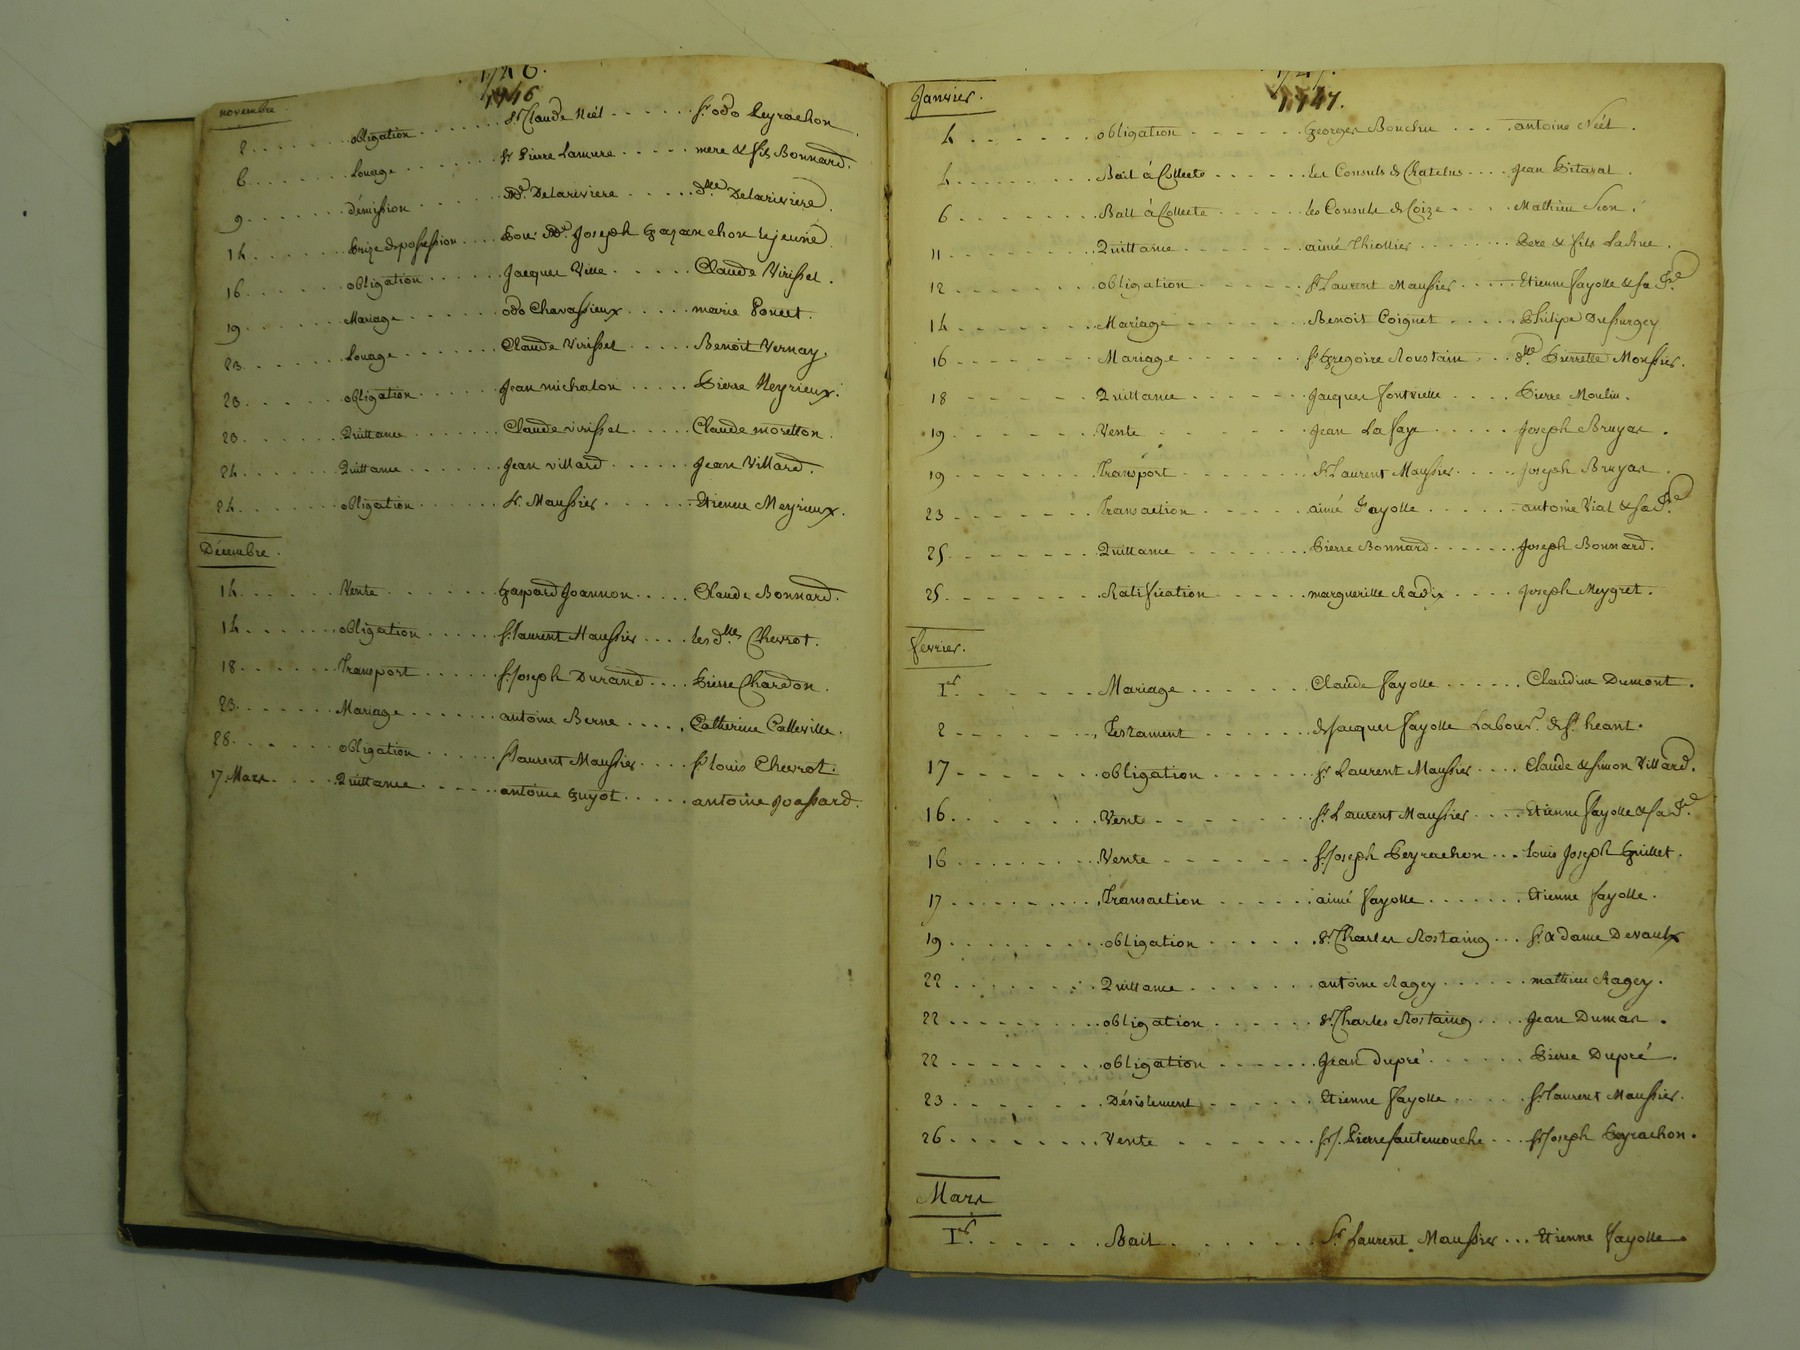 1746.
1746
novembre
2 . . . . . . obligation . . . . . . Sr. Claude Néel . . . . . . Sr. odo Peyrachon.
6 . . . . . . Louage . . . . . . Sr. Pierre Lamure . . . . . mere & fils Bonnard.
9 . . . . . . démission . . . . . . Delariviere . . . . . dlle Delariviere.
14 . . . . . . Prize de possession . . . . Joseph Gazanchon lejeune.
16 . . . . . . obligation . . . . . . Jacques Ville . . . . . Claude Virisset.
19 . . . . . . Mariage . . . . . . odo Chavassieux . . . . marie Poncet.
23 . . . . . . Louage . . . . . . Claude Virisset . . . . . Benoit Vernay.
23 . . . . . . obligation . . . . . . Jean michalon . . . . . Pierre Meyrieux.
23 . . . . . . Quittance . . . . . . Claude virisset . . . . . Claude moretton.
24 . . . . . . Quittance . . . . . . Jean villard . . . . . Jean Villard.
24 . . . . . . obligation . . . . . . Sr. Maussier . . . . . . Etienne Meyrieux.
Décembre.
14 . . . . . . Vente . . . . . . . Gaspard Joannon . . . . . Claude Bonnard.
14 . . . . . . obligation . . . . . . Sr. laurent Maussier . . . . les dlles Chevrot.
18 . . . . . . Transport . . . . . . Sr. Joseph Durand . . . . Pierre Chardon.
23 . . . . . . Mariage . . . . . . . antoine Berne . . . . . Catherine Calleville.
28 . . . . . . obligation . . . . . . Sr. laurent Maussier . . . . Sr. louis Chevrot.
17 Mars . . . . Quittance . . . . . . antoine Guyot . . . . . antoine Joassard.
1747.
1747.
Janvier.
4 . . . . . . obligation . . . . . . Georges Bouchu . . . . antoine Néel.
4 . . . . . . Bail à Collecte . . . . . . les Consuls de Chatelus . . . . Jean Pitaval.
6 . . . . . . Bail à Collecte . . . . . . les Consuls de Coize . . . . Mathieu Seon.
11 . . . . . . Quittance . . . . . . aimé Thiollier . . . . . . Pere & fils
12 . . . . . . obligation . . . . . . Sr. Laurent Maussier . . . . . Etienne fayolle & sa
14 . . . . . . Mariage . . . . . . Benoit Coignet . . . . . Philipe Dussurgey
16 . . . . . . Mariage . . . . . . Sr. Gregoire Roustain . . . dlle Pierrette Moussier.
18 . . . . . . Quittance . . . . . . Jacques fontvielle . . . . Pierre Moulin.
19 . . . . . . Vente . . . . . . Jean La faye . . . . . Joseph Bruyas.
19 . . . . . . Transport . . . . . . Sr. Laurent Maussier . . . . Joseph Bruyas.
23 . . . . . . Transaction . . . . . . aimé Fayolle . . . . . . antoine Vial & sa
25 . . . . . . Quittance . . . . . . Pierre Bonnard . . . . . . Joseph Bonnard.
25 . . . . . . Ratification . . . . . . marguerille Radix . . . . Joseph Meygret.
fevrier.
Ier. . . . . . . Mariage . . . . . . . Claude fayolle . . . . . . Claudine Dumont.
2 . . . . . . Testament . . . . . . de Jacques fayolle Labour. de St. heant.
17 . . . . . . obligation . . . . . . Sr. Laurent Maussier . . . . Claude & simon Villard.
16 . . . . . . Vente . . . . . . . Sr. Laurent Maussier . . . . Etienne fayolle & sa
16 . . . . . . Vente . . . . . . . Sr. Joseph Peyrachon . . . louis Joseph Guillet.
17 . . . . . . Transaction . . . . . . aimé fayolle . . . . . . . Etienne fayolle.
19 . . . . . . obligation . . . . . . Sr. Charles Rostaing . . . Sr. & dame Devaulx
22 . . . . . . Quittance . . . . . . antoine Ragey . . . . . . mathieu Ragey.
22 . . . . . . obligation . . . . . . Sr. Charles Rostaing . . . . Jean Dumas.
22 . . . . . . obligation . . . . . . Jean dupré . . . . . . Pierre Dupré.
23 . . . . . . Désistement . . . . . . Etienne fayolle . . . . . Sr. laurent Maussier.
26 . . . . . . Vente . . . . . . . Sr. J. Pierre fautemouche . . . Sr. Joseph Peyrachon.
Mars
Ier. . . . . . . Bail . . . . . . . Sr. Laurent Maussier . . . Etienne fayolle.